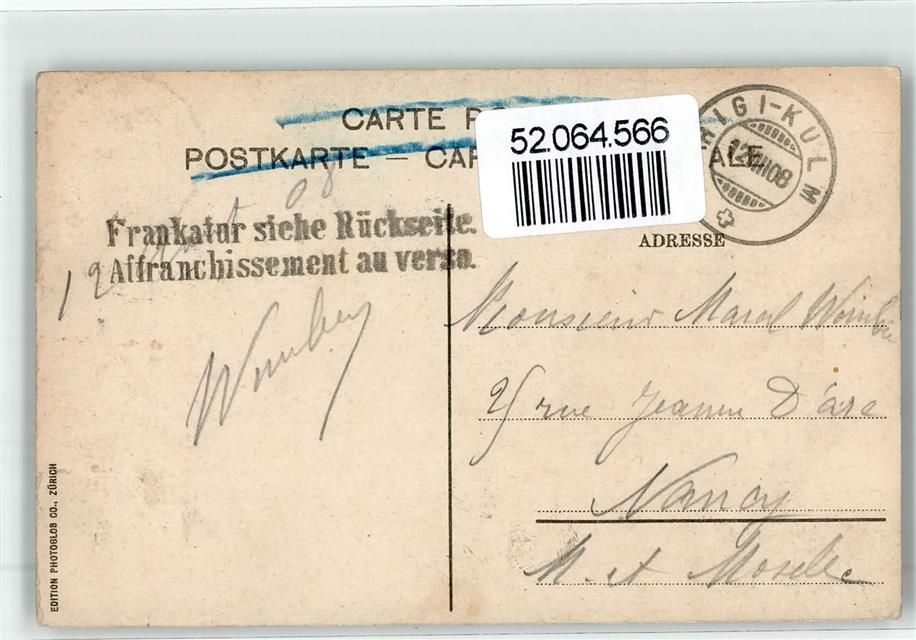 CARTE PO
POSTKARTE — CAR ALE
52.064.566
RIGI-KULM
12 VIII 08
Frankatur siehe Rückseite.
Affranchissement au verso.
ADRESSE
12 08
Monsieur Marcel
25 rue Jeanne D'arc
Nancy
M. et Moselle
EDITION PHOTOGLOB CO., ZÜRICH